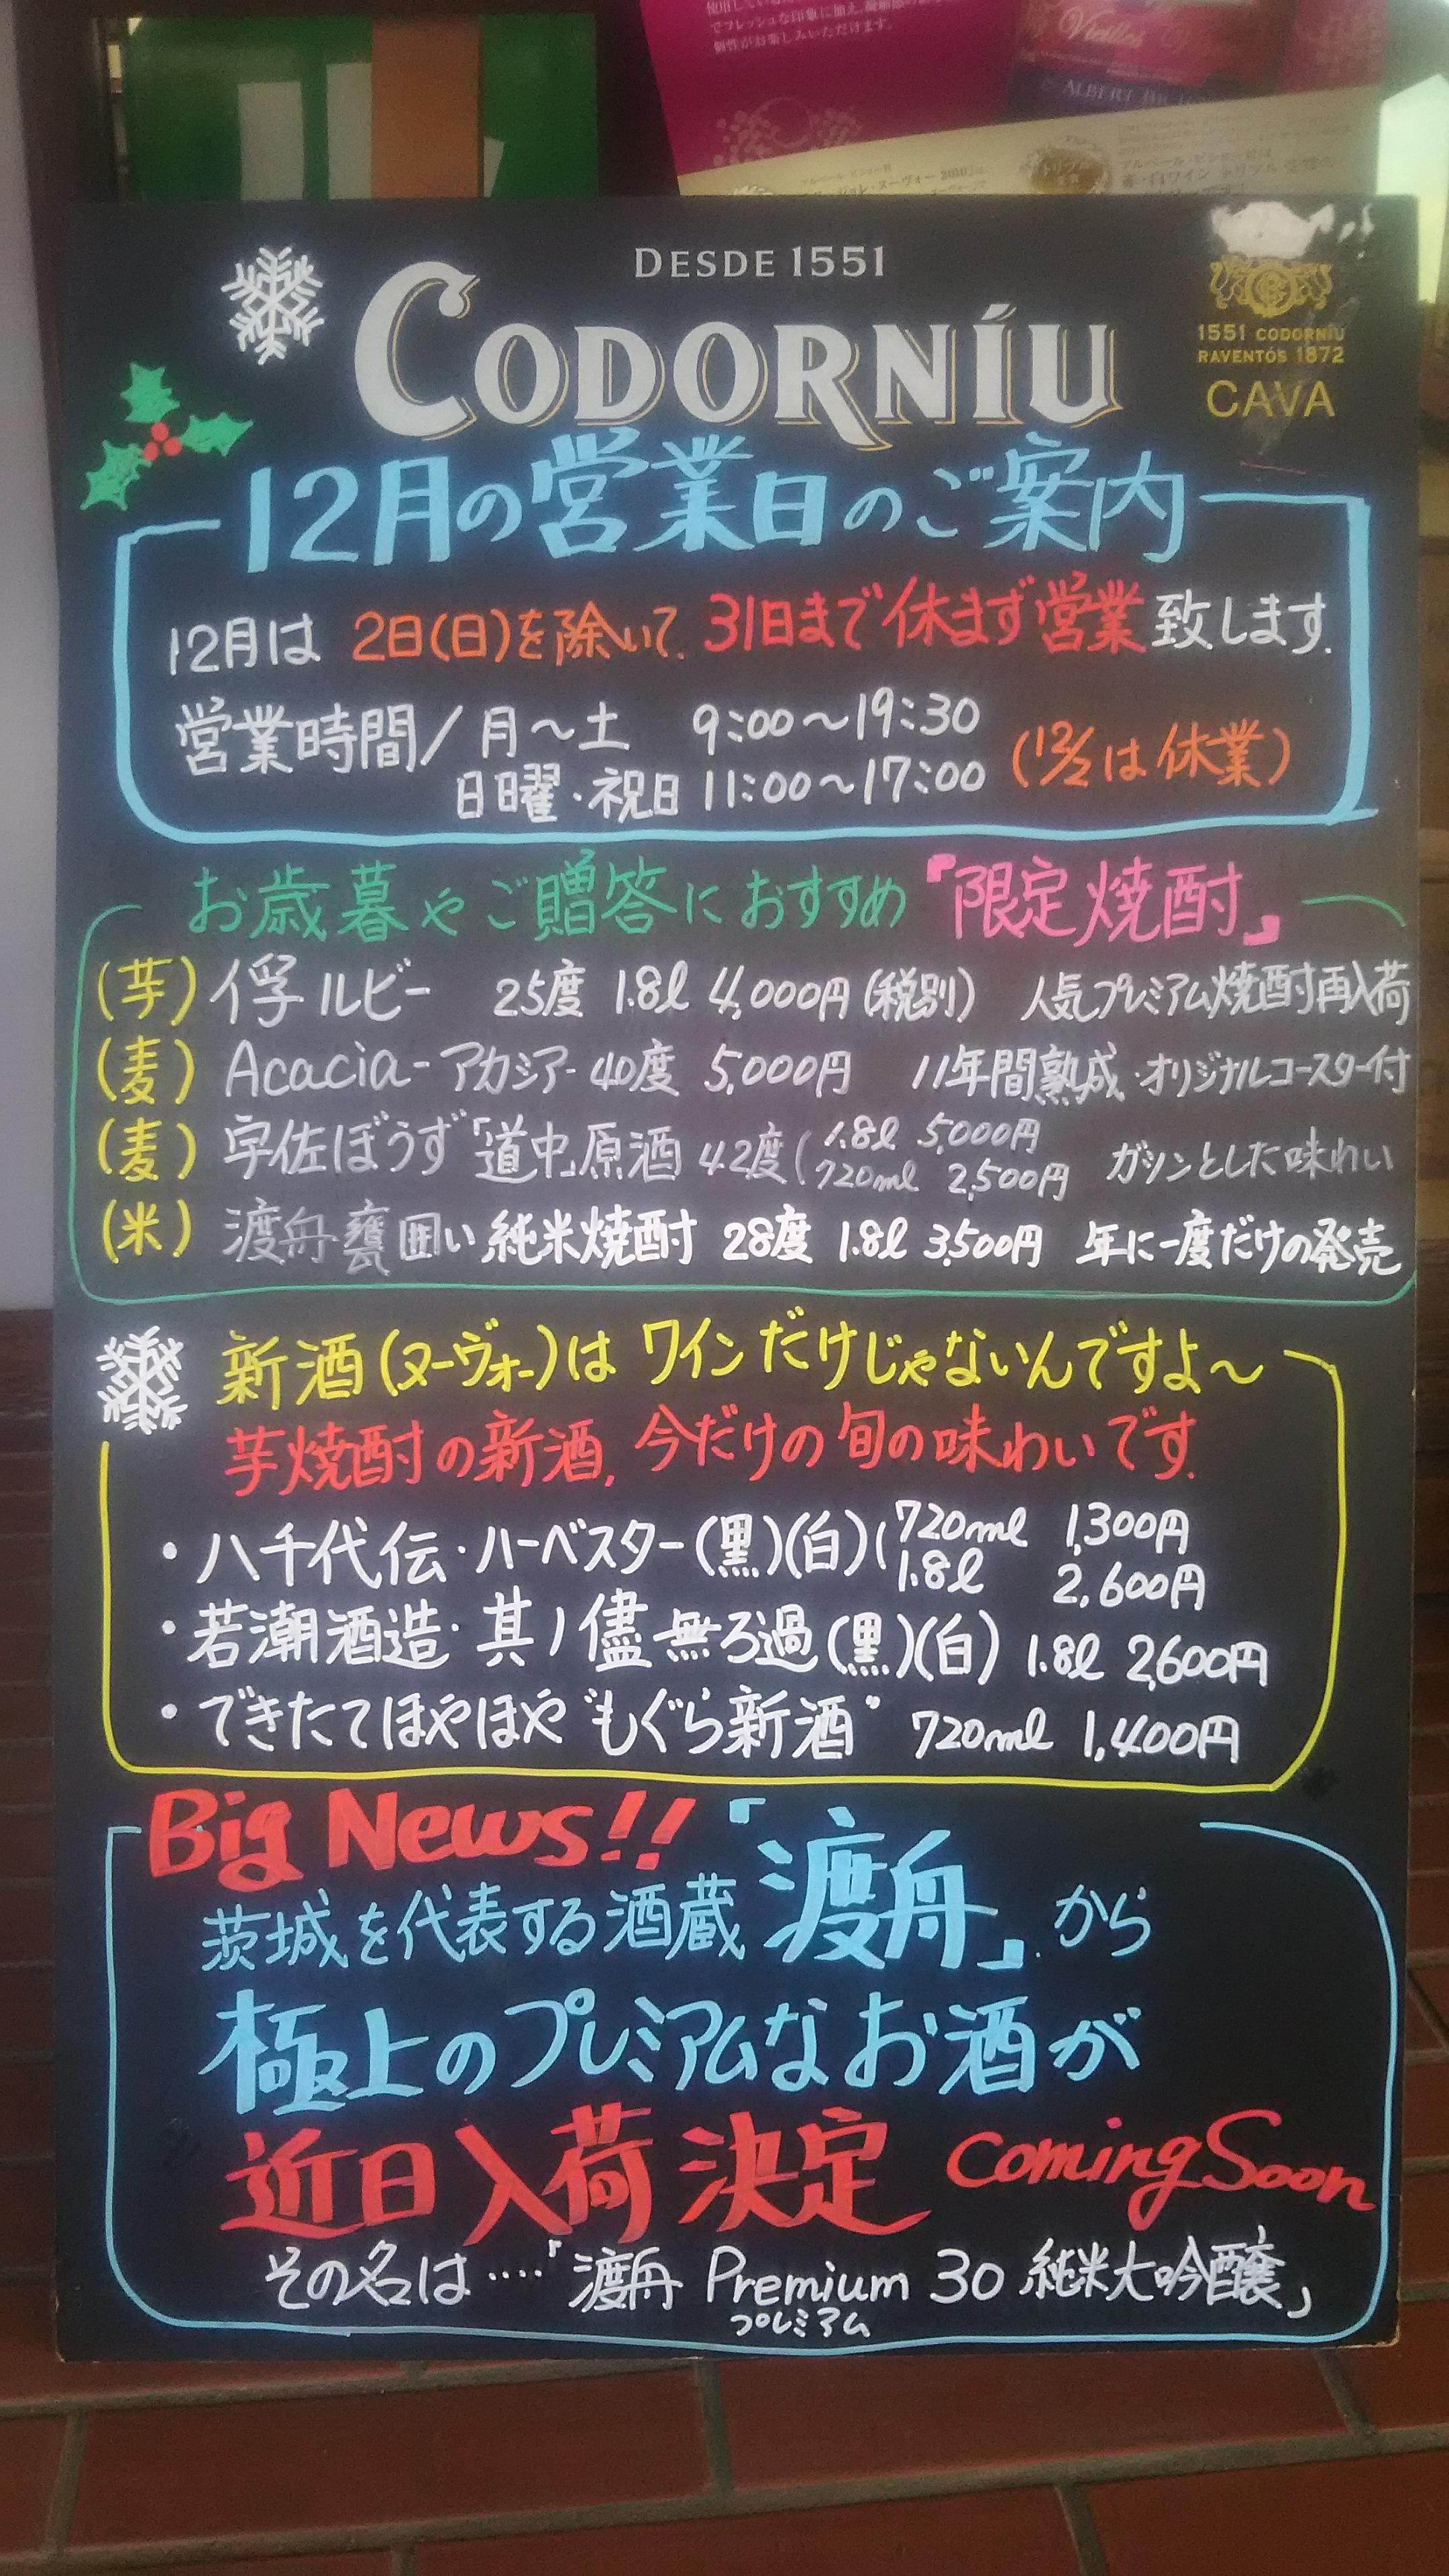 でフレッシュな印象に加え、
個性がお楽しみいただけます。
Vieilles
ALBERT BICHOT
DESDE 1551
CODORNÍU
1551 CODORNÍU
RAVENTÓS 1872
CAVA
12月の営業日のご案内
12月は 2日(日)を除いて、31日まで休まず営業致します.
営業時間/月〜土 9:00〜19:30
日曜・祝日 11:00〜17:00 (12/2は休業)
お歳暮やご贈答におすすめ『限定焼酎』
(芋) 俘ルビー 25度 1.8ℓ 4,000円(税別) 人気プレミアム焼酎再入荷
(麦) Acacia-アカシア- 40度 5,000円 11年間熟成・オリジナルコースター付
(麦) 宇佐ぼうず「道中」原酒 42度(1.8ℓ 5,000円
720ml 2,500円 ガツンとした味わい
(米) 渡舟甕囲い純米焼酎 28度 1.8ℓ 3,500円 年に一度だけの発売
新酒(ヌーヴォー)は ワインだけじゃないんですよ〜
芋焼酎の新酒, 今だけの旬の味わいです.
・八千代伝・ハーベスター(黒)(白)(720ml 1,300円
1.8ℓ 2,600円
・若潮酒造・其ノ儘 無ろ過(黒)(白) 1.8ℓ 2,600円
・できたてほやほや“もぐら新酒” 720ml 1,400円
Big News!!
茨城を代表する酒蔵「渡舟」から
極上のプレミアムなお酒が
近日入荷決定 Coming Soon
その名は‥‥『渡舟 Premium 30 純米大吟醸』
プレミアム